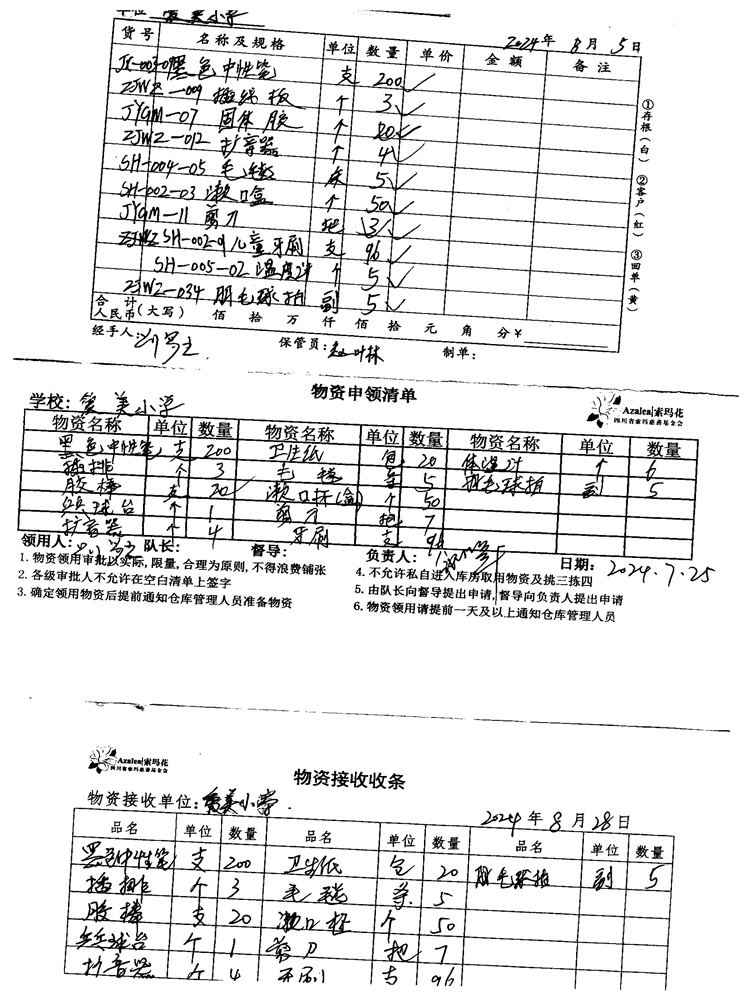 单位 爱美小学
2024年 8月 5日
货号 名称及规格 单位 数量 单价 金额 备注
黑色中性笔 支 200 ✓
ZJWZ-009 插线板 个 3 ✓
JYGM-07 固体胶 个 20 ✓
ZJWZ-012 扩音器 个 4 ✓
SH-004-05 毛毯 床 5 ✓
SH-002-03 漱口盒 个 50 ✓
JYGM-11 剪刀 把 ✓
SH-002-01 儿童牙刷 支 96 ✓
SH-005-02 温度计 个 5 ✓
ZJWZ-034 羽毛球拍 副 5 ✓
合计
人民币(大写) 佰 拾 万 仟 佰 拾 元 角 分¥
经手人: 保管员: 制单:
①存根(白) ②客户(红) ③回单(黄)
物资申领清单
Azalea|索玛花
四川省索玛慈善基金会
学校: 爱美小学
物资名称 单位 数量 物资名称 单位 数量 物资名称 单位 数量
黑色中性笔 支 200 卫生纸 包 20 体温计 个 6
插排 个 3 毛毯 5 羽毛球拍 副 5
胶棒 支 20 漱口杯(盒) 个 50
乒乓球台 个 1 剪刀 把 7
扩音器 个 4 牙刷 支 96
领用人: 队长: 督导: 负责人: 日期: 2024.7.25
1. 物资领用审批以实际,限量,合理为原则,不得浪费铺张
2. 各级审批人不允许在空白清单上签字
3. 确定领用物资后提前通知仓库管理人员准备物资
4. 不允许私自进入库房取用物资及挑三拣四
5. 由队长向督导提出申请,督导向负责人提出申请
6. 物资领用请提前一天及以上通知仓库管理人员
Azalea|索玛花
四川省索玛慈善基金会
物资接收收条
物资接收单位: 爱美小学.
2024年 8月 28日
品名 单位 数量 品名 单位 数量 品名 单位 数量
黑色中性笔 支 200 卫生纸 包 20 羽毛球拍 副 5
插排 个 3 毛毯 条 5
胶棒 支 20 漱口杯 个 50
乒乓球台 个 1 剪刀 把 7
扩音器 个 4 牙刷 支 96